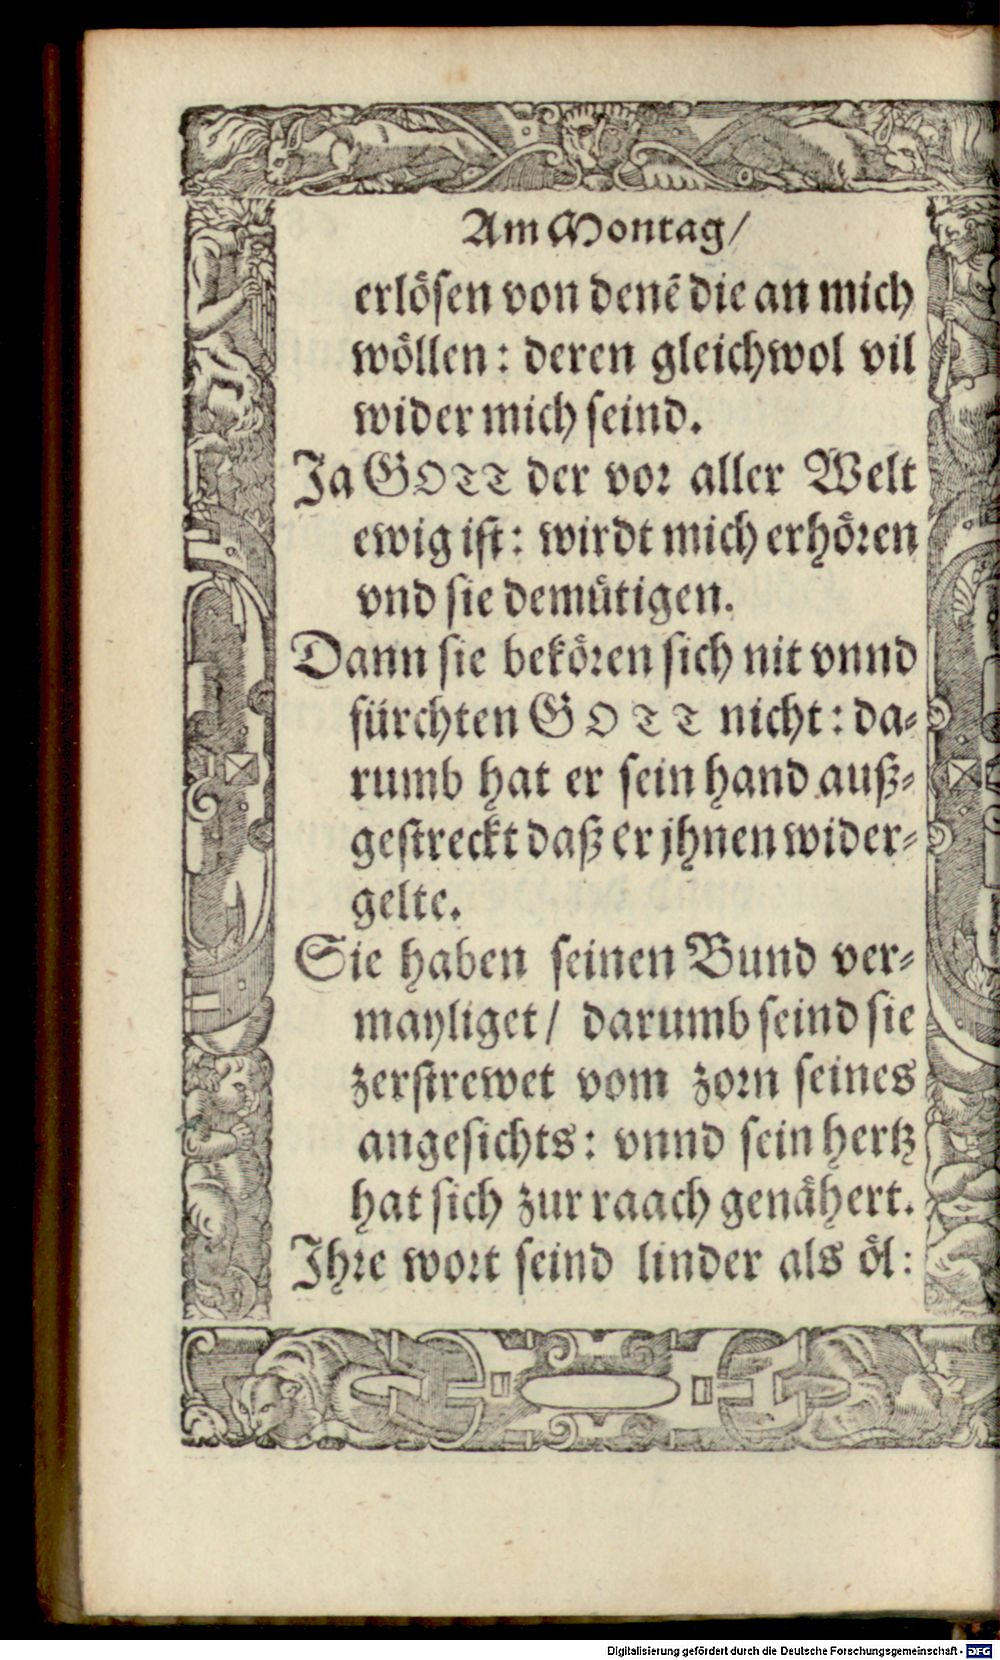 Am Montag/
erlösen von denẽ die an mich
wöllen: deren gleichwol vil
wider mich seind.
Ja GOTT der vor aller Welt
ewig ist: wirdt mich erhören
vnd sie demütigen.
Dann sie bekören sich nit vnnd
fürchten GOTT nicht: da⸗
rumb hat er sein hand auß⸗
gestreckt daß er jhnen wider⸗
gelte.
Sie haben seinen Bund ver⸗
mayliget/ darumb seind sie
zerstrewet vom zorn seines
angesichts: vnnd sein hertz
hat sich zur raach genähert.
Jhre wort seind linder als öl:
Digitalisierung gefördert durch die Deutsche Forschungsgemeinschaft - DFG